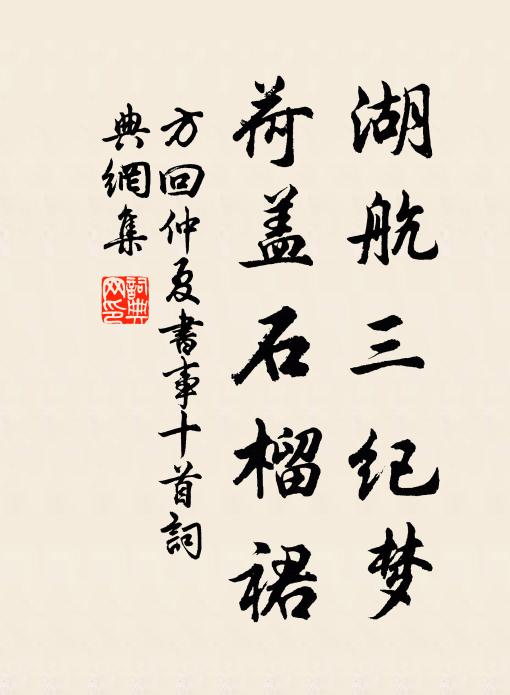 湖航三纪梦
荷盖石榴裙
方回仲夏书事十首詞
典網集
詞典
网印